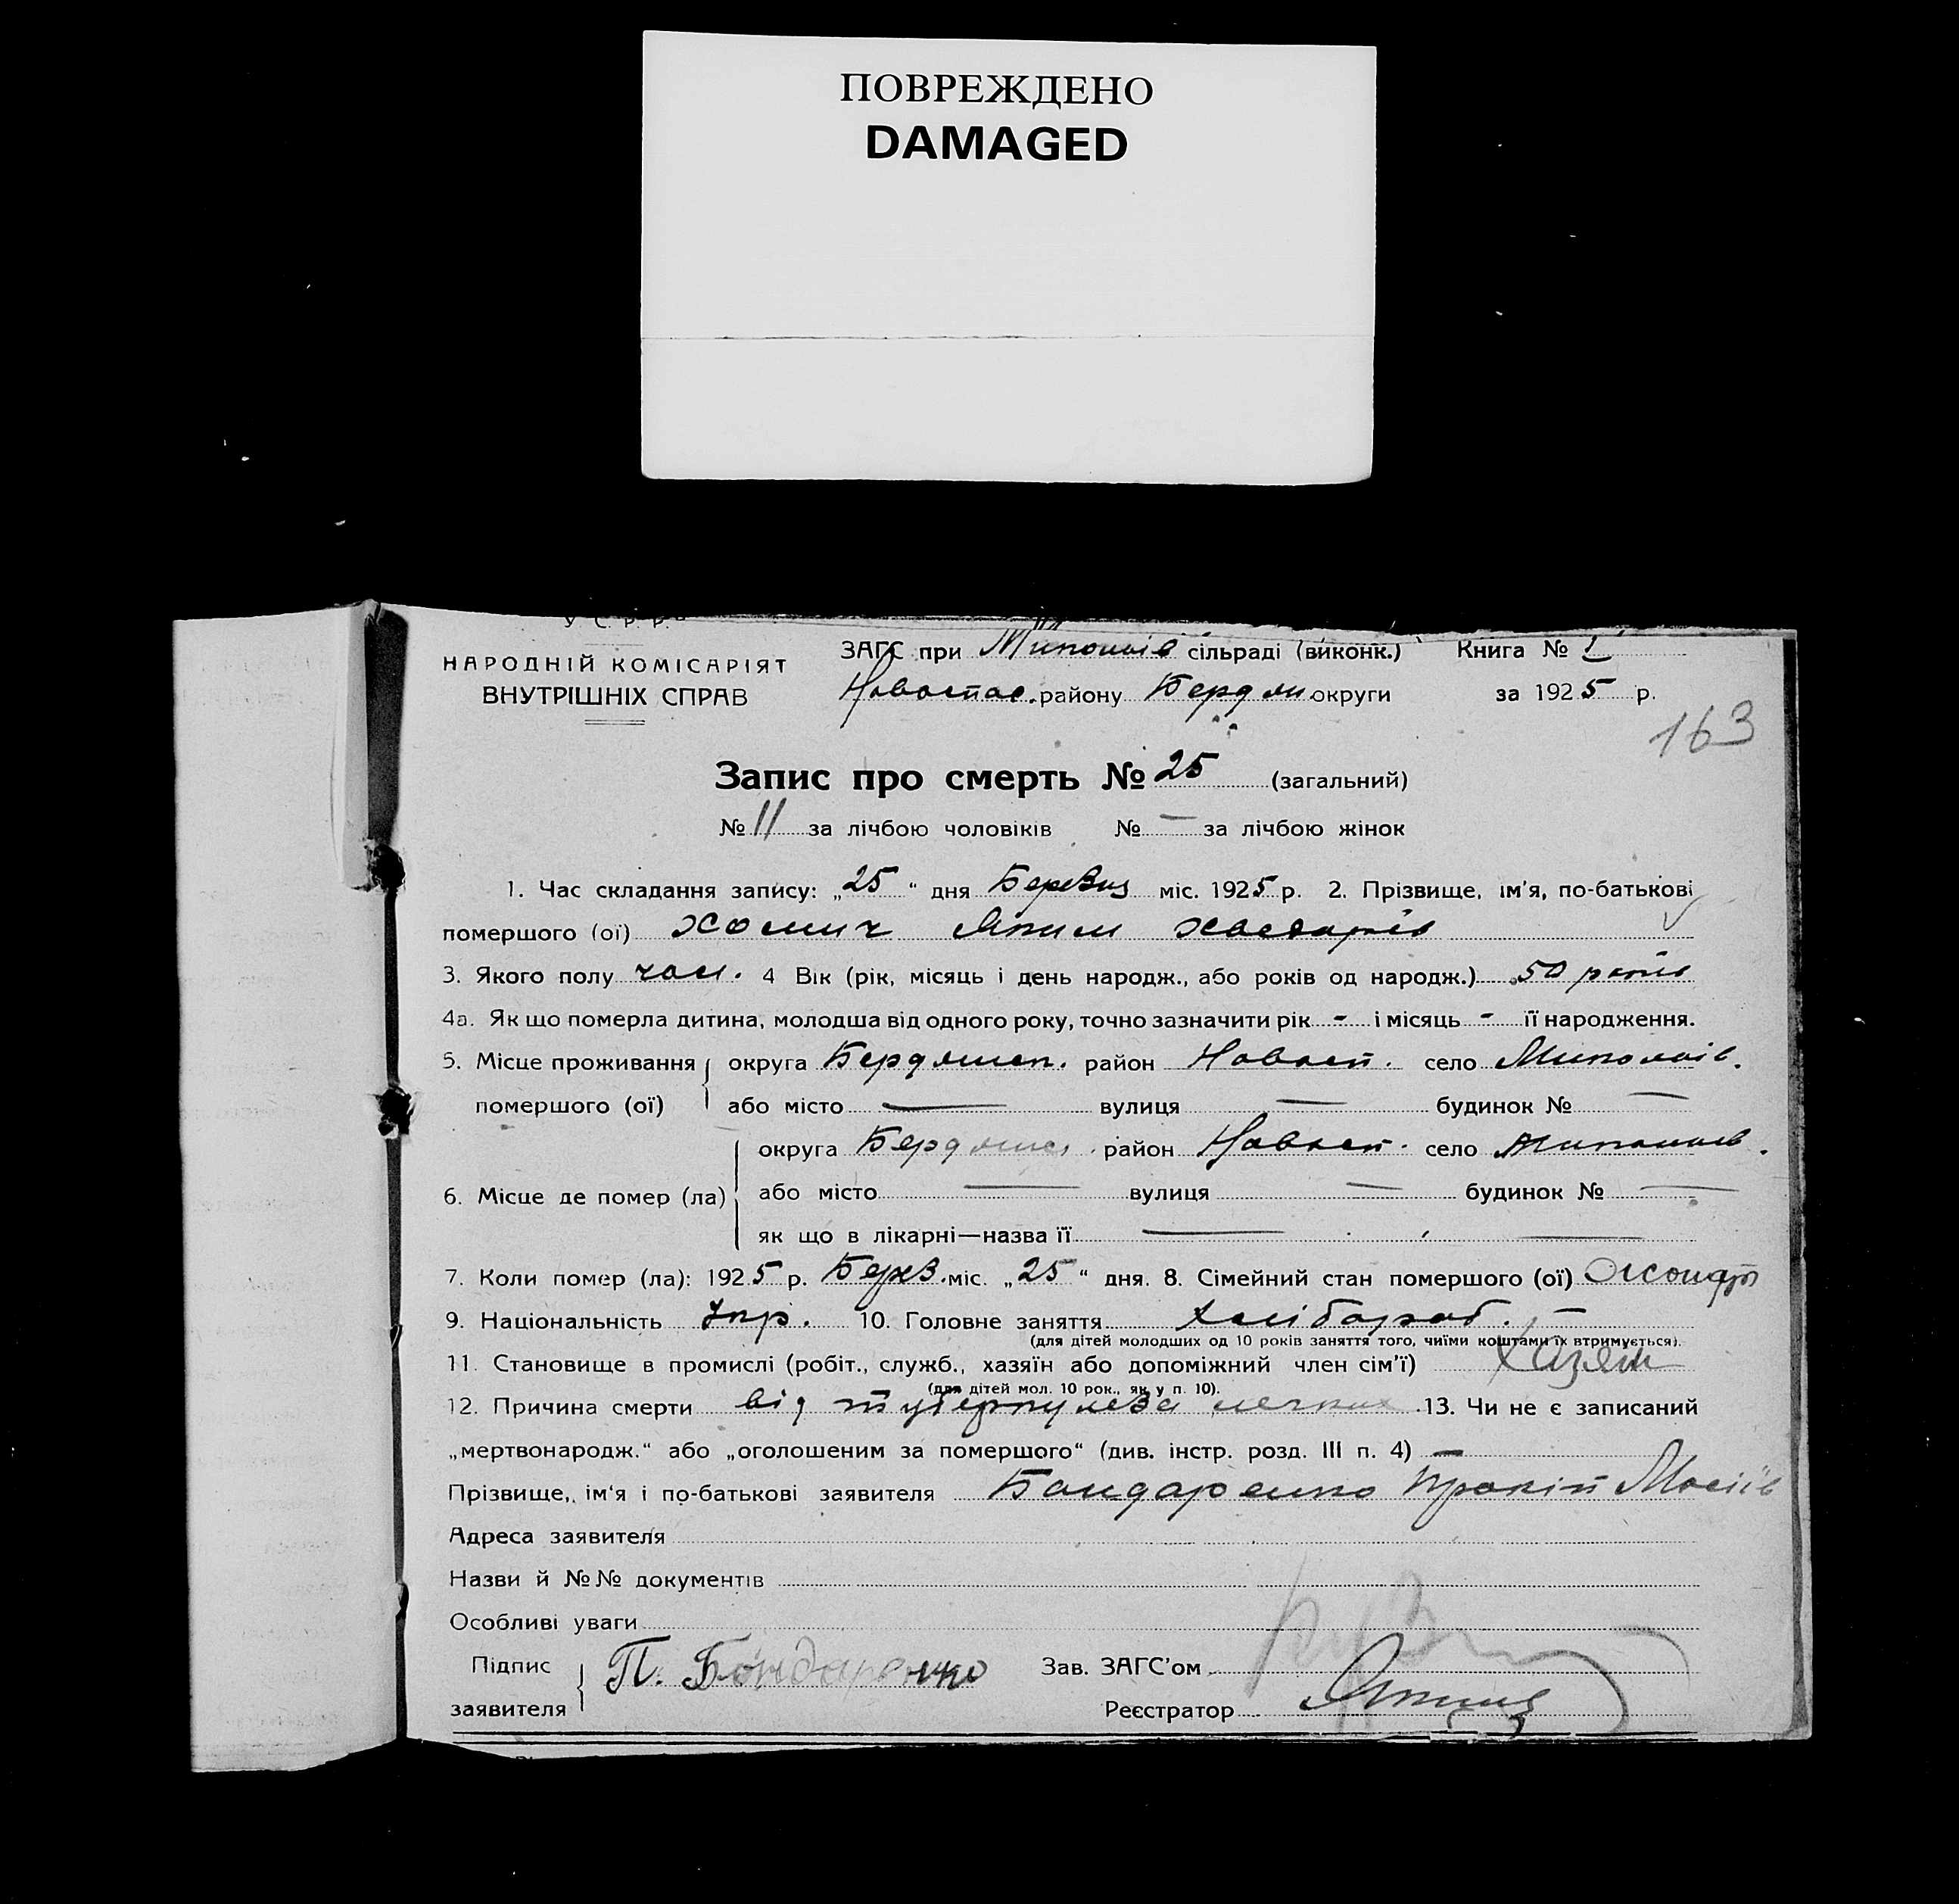 ПОВРЕЖДЕНО
DAMAGED
У С. Р. Р.
НАРОДНІЙ КОМІСАРІЯТ
ВНУТРІШНІХ СПРАВ
ЗАГС при сільраді (виконк.) Книга № I
Новоспас. району Бердян округи за 1925 р.
163
Запис про смерть № 25 (загальний)
№ 11 за лічбою чоловіків № — за лічбою жінок
1. Час складання запису: „25“ дня Березня міс. 1925 р. 2. Прізвище, ім'я, по-батькові
помершого (ої) Хомич Яким
3. Якого полу чол. 4 Вік (рік, місяць і день народж., або років од народж.) 50 років
4а. Як що померла дитина, молодша від одного року, точно зазначити рік - і місяць - її народження.
5. Місце проживання округа Бердянськ. район Новосп. село
помершого (ої) або місто — вулиця — будинок № —
округа Бердянськ. район Новосп. село
6. Місце де помер (ла) або місто — вулиця — будинок № —
як що в лікарні—назва її — —
7. Коли помер (ла): 1925 р. Берез. міс. „25“ дня. 8. Сімейний стан помершого (ої)
9. Національність Укр. 10. Головне заняття Хлібороб. —
(для дітей молодших од 10 років заняття того, чиїми коштами їх втримується).
11. Становище в промислі (робіт., служб., хазяїн або допоміжний член сім'ї) Хазяїн
(для дітей мол. 10 рок., як у п. 10).
12. Причина смерти від туберкульоза легких 13. Чи не є записаний
„мертвонародж.“ або „оголошеним за помершого“ (див. інстр. розд. III п. 4) —
Прізвище, ім'я і по-батькові заявителя Бондаренко Прокіп
Адреса заявителя
Назви й №№ документів
Особливі уваги
Підпис заявителя П. Бондаренко Зав. ЗАГС'ом
Реєстратор